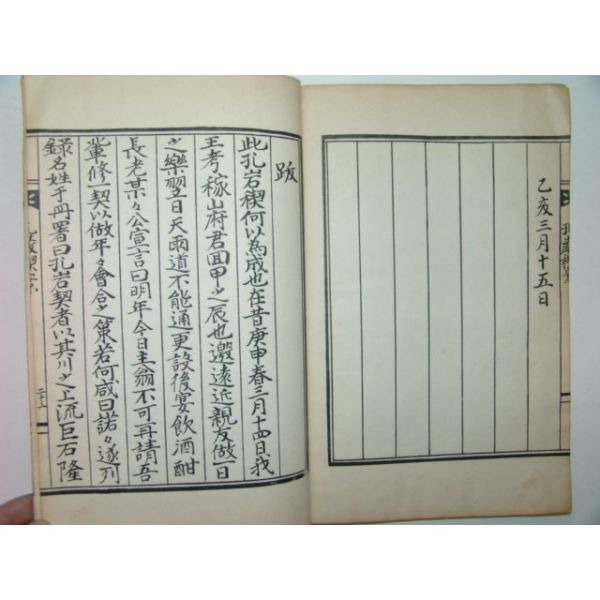 乙亥三月十五日
跋
此孔岩稧何以為成也在昔庚申春三月十四日我
王考稼山府君回甲之辰也邀遠近親友做一日
之樂翌日天雨道不能通更設後宴飲酒酣
長老某々公宣言曰明年今日主翁不可再請吾
輩修一契以做年々會合之策若何咸曰諾々遂列
錄名姓于冊署曰孔岩契者以其川之上流巨石隆